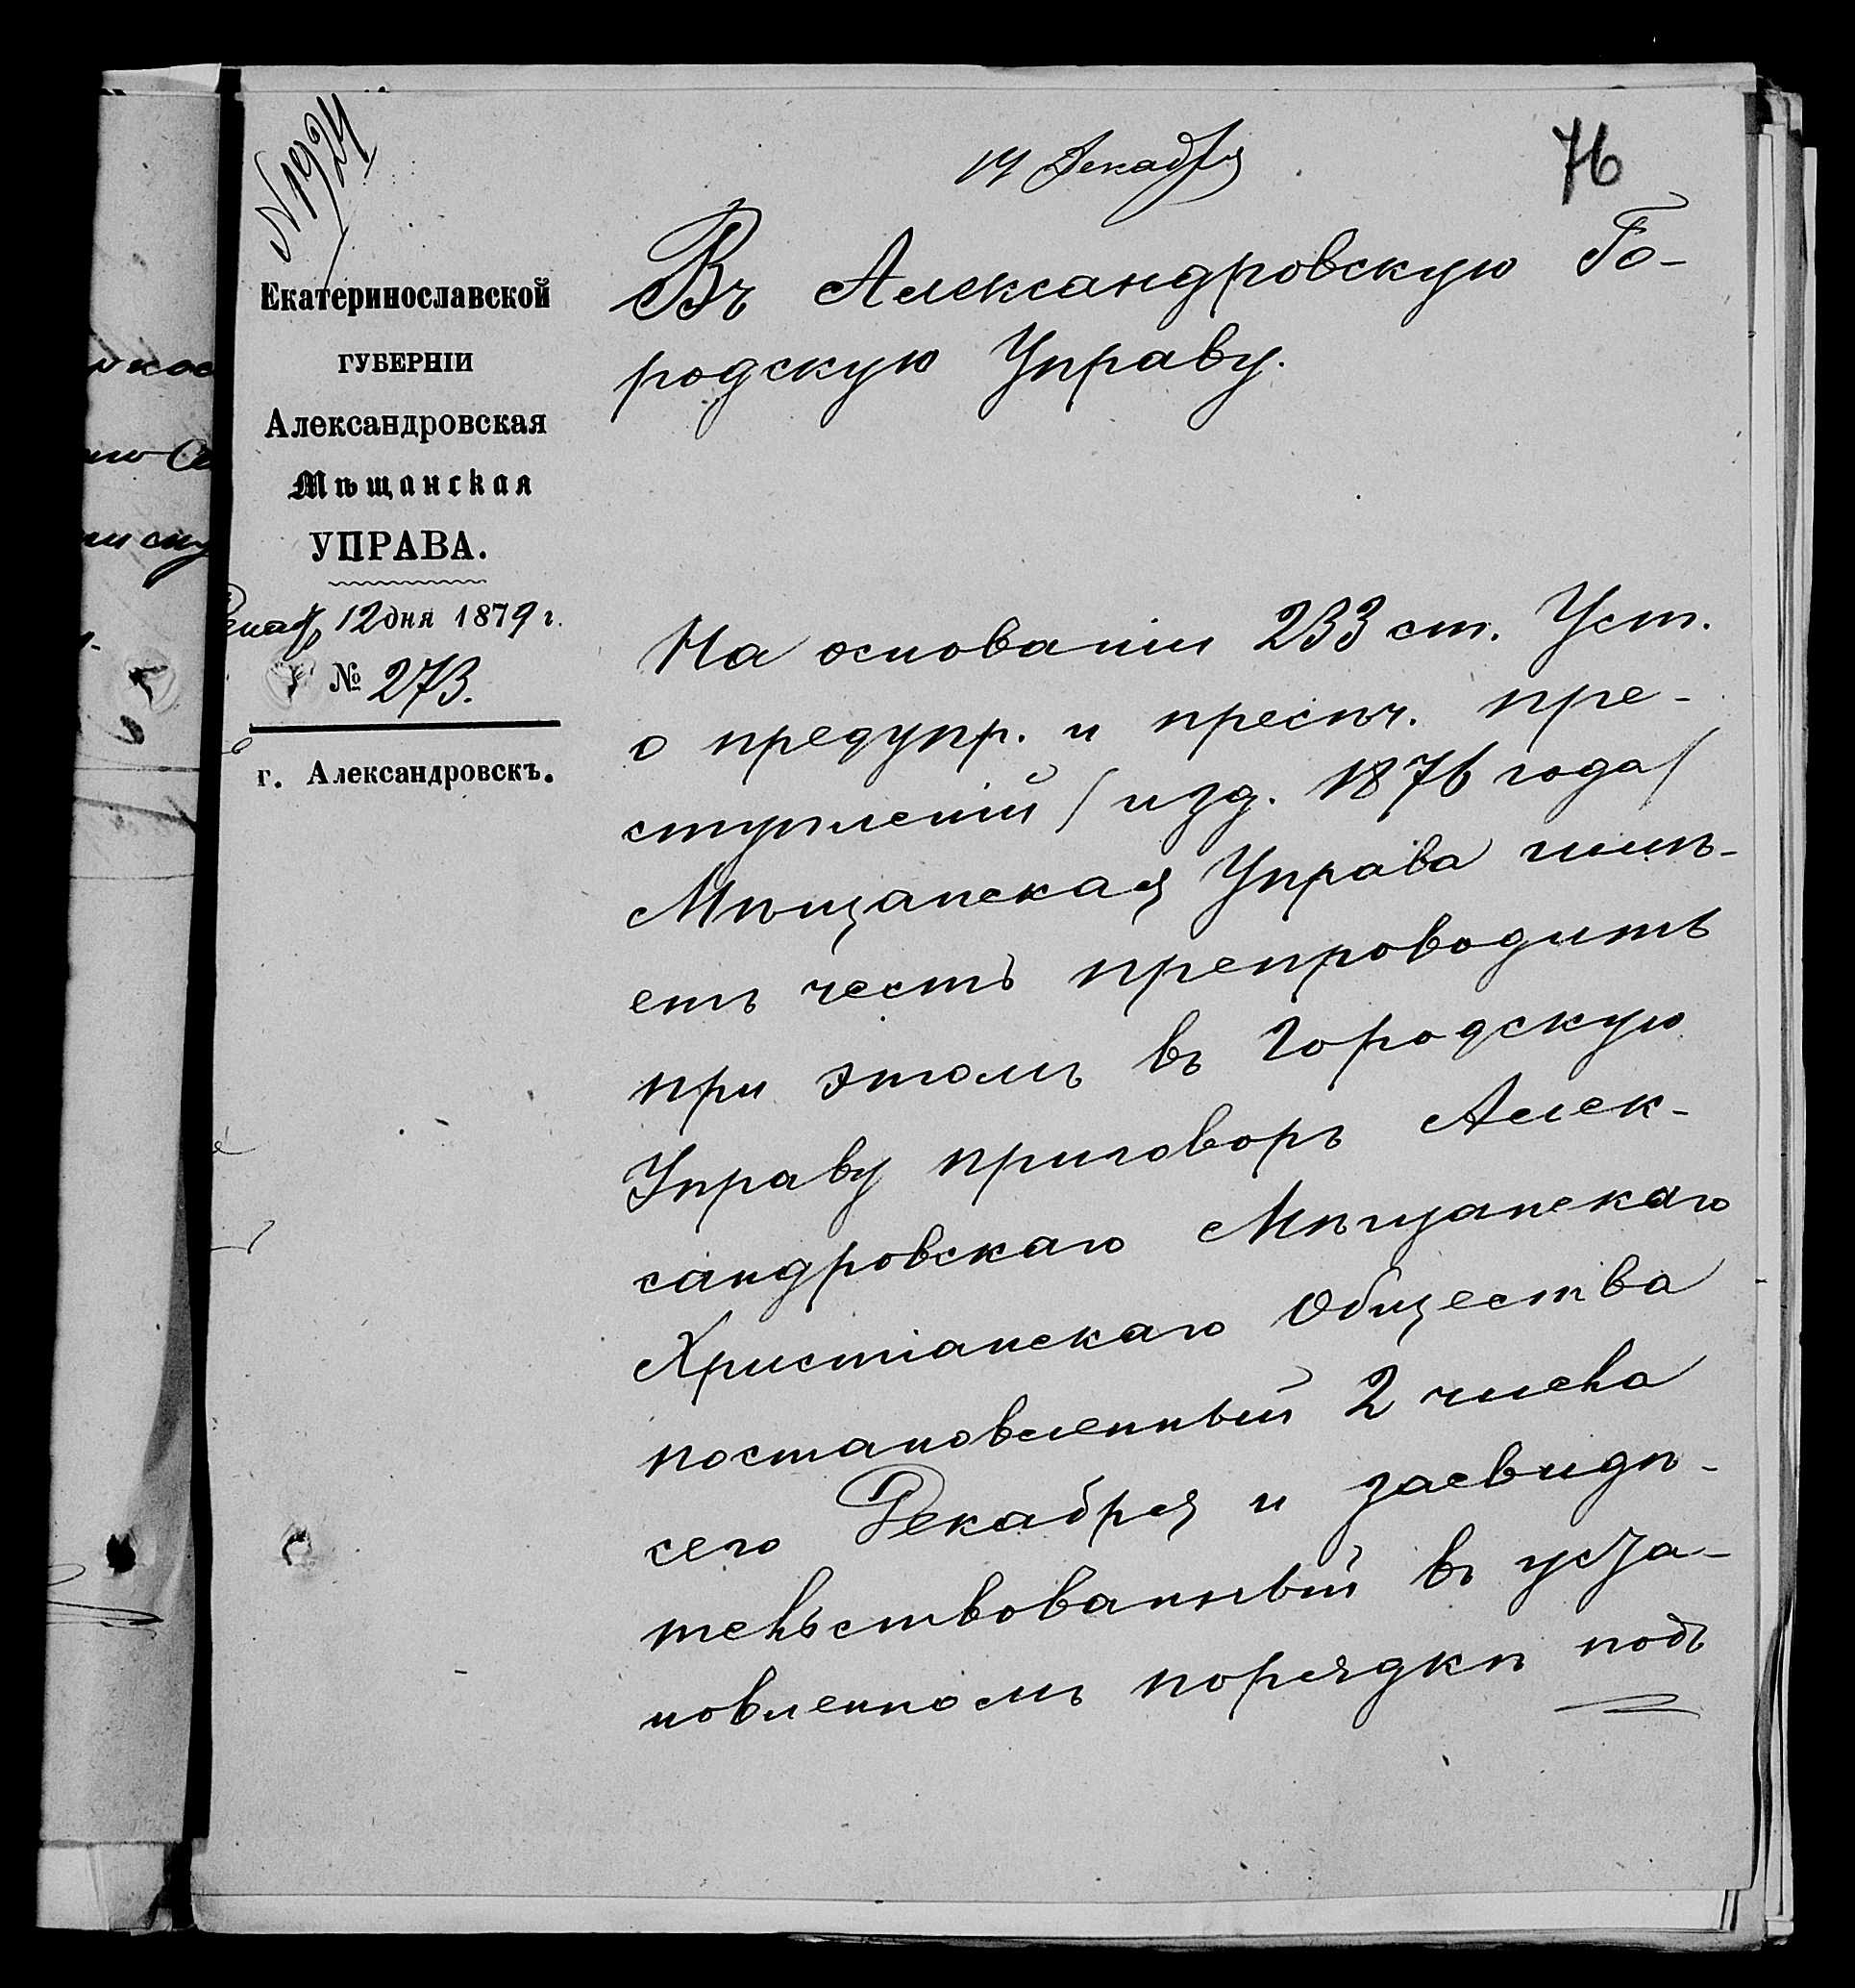 № 1924
14 Декабря
76
Екатеринославской
ГУБЕРНІИ
Александровская
Мѣщанская
УПРАВА.
Декаб. 12 дня 1879 г.
№ 273.
г. Александровскъ.
Въ Александровскую Го-
родскую Управу.
На основаніи 233 ст. Уст.
о предупр. и пресѣч. пре-
ступленій / изд. 1876 года /
Мѣщанская Управа имѣ-
етъ честь препроводить
при этомъ въ Городскую
Управу приговоръ Алек-
сандровскаго Мѣщанскаго
Христіанскаго Общества
постановленный 2 числа
сего Декабря и засвидѣ-
тельствованный въ уста-
новленномъ порядкѣ подъ